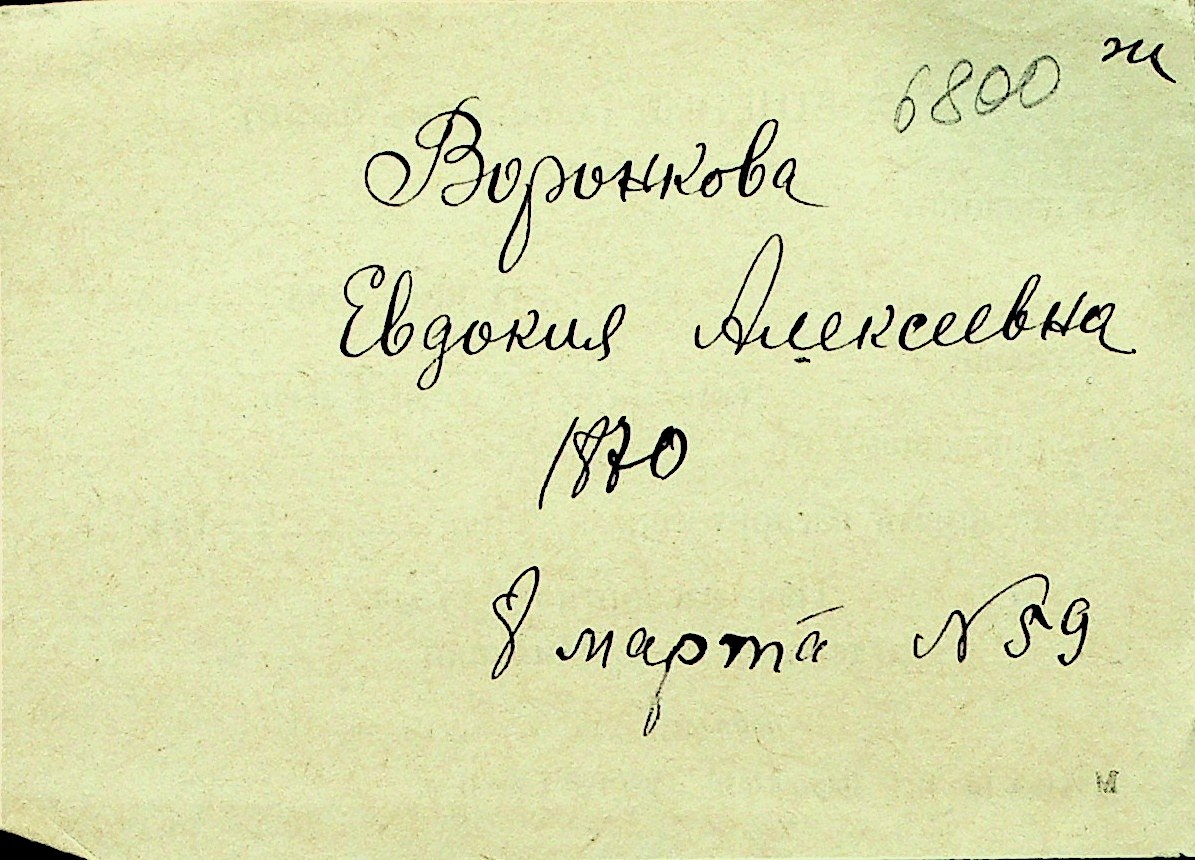 6800 ж
Воронкова
Евдокия Алексеевна
1870
8 марта № 59